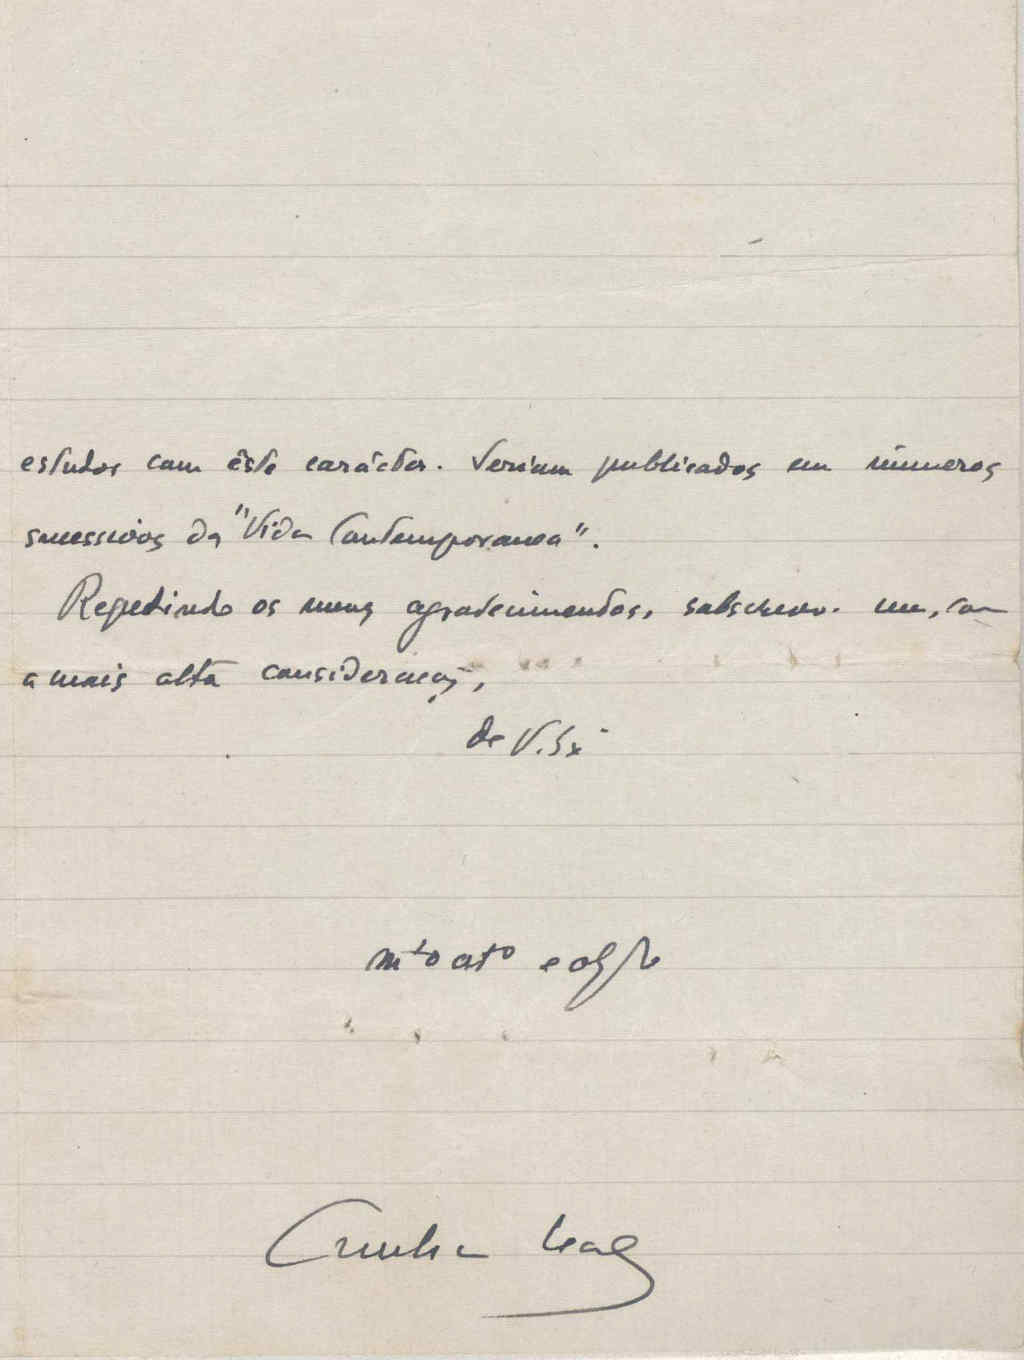 estudos com êste carácter. Seriam publicados em números
sucessivos da "Vida Contemporanea".
Repetindo os meus agradecimentos, subscrevo-me, com
a mais alta consideração,
de V. Ex.ª
mto ato e obgdo
Cunha Leal